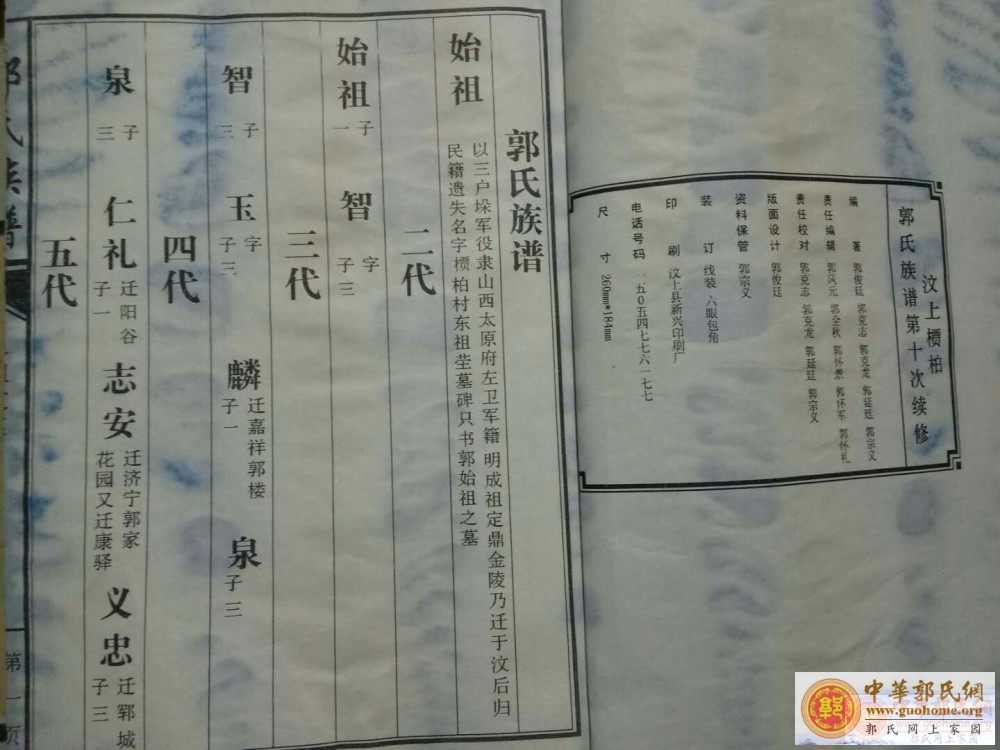 汶上槚柏
郭氏族谱第十次续修
编 著 郭俊廷 郭克志 郭克龙 郭延廷 郭宗义
责任编辑 郭凤元 郭全秋 郭怀景 郭怀军 郭怀礼
责任校对 郭克志 郭克龙 郭延廷 郭宗义
版面设计 郭俊廷
资料保管 郭宗义
装 订 线装 六眼包角
印 刷 汶上县新兴印刷厂
电话号码 五0五四七七六一七七
尺 寸 260mm*184mm
郭氏族谱
始祖 以三户垛军役隶山西太原府左卫军籍 明成祖定鼎金陵乃迁于汶后归
民籍遗失名字槚柏村东祖茔墓碑只书郭始祖之墓
二代
始祖 子一 智 字 子三
三代
智 子三 玉 字 子三 麟 迁嘉祥郭楼 子一 泉 子三
四代
泉 子三 仁礼 迁阳谷 子一 志安 迁济宁郭家花园又迁康驿 义忠 迁郓城 子三
五代
氏族谱
第一页
中華郭氏網
www.guohome.org
郭氏网上家园